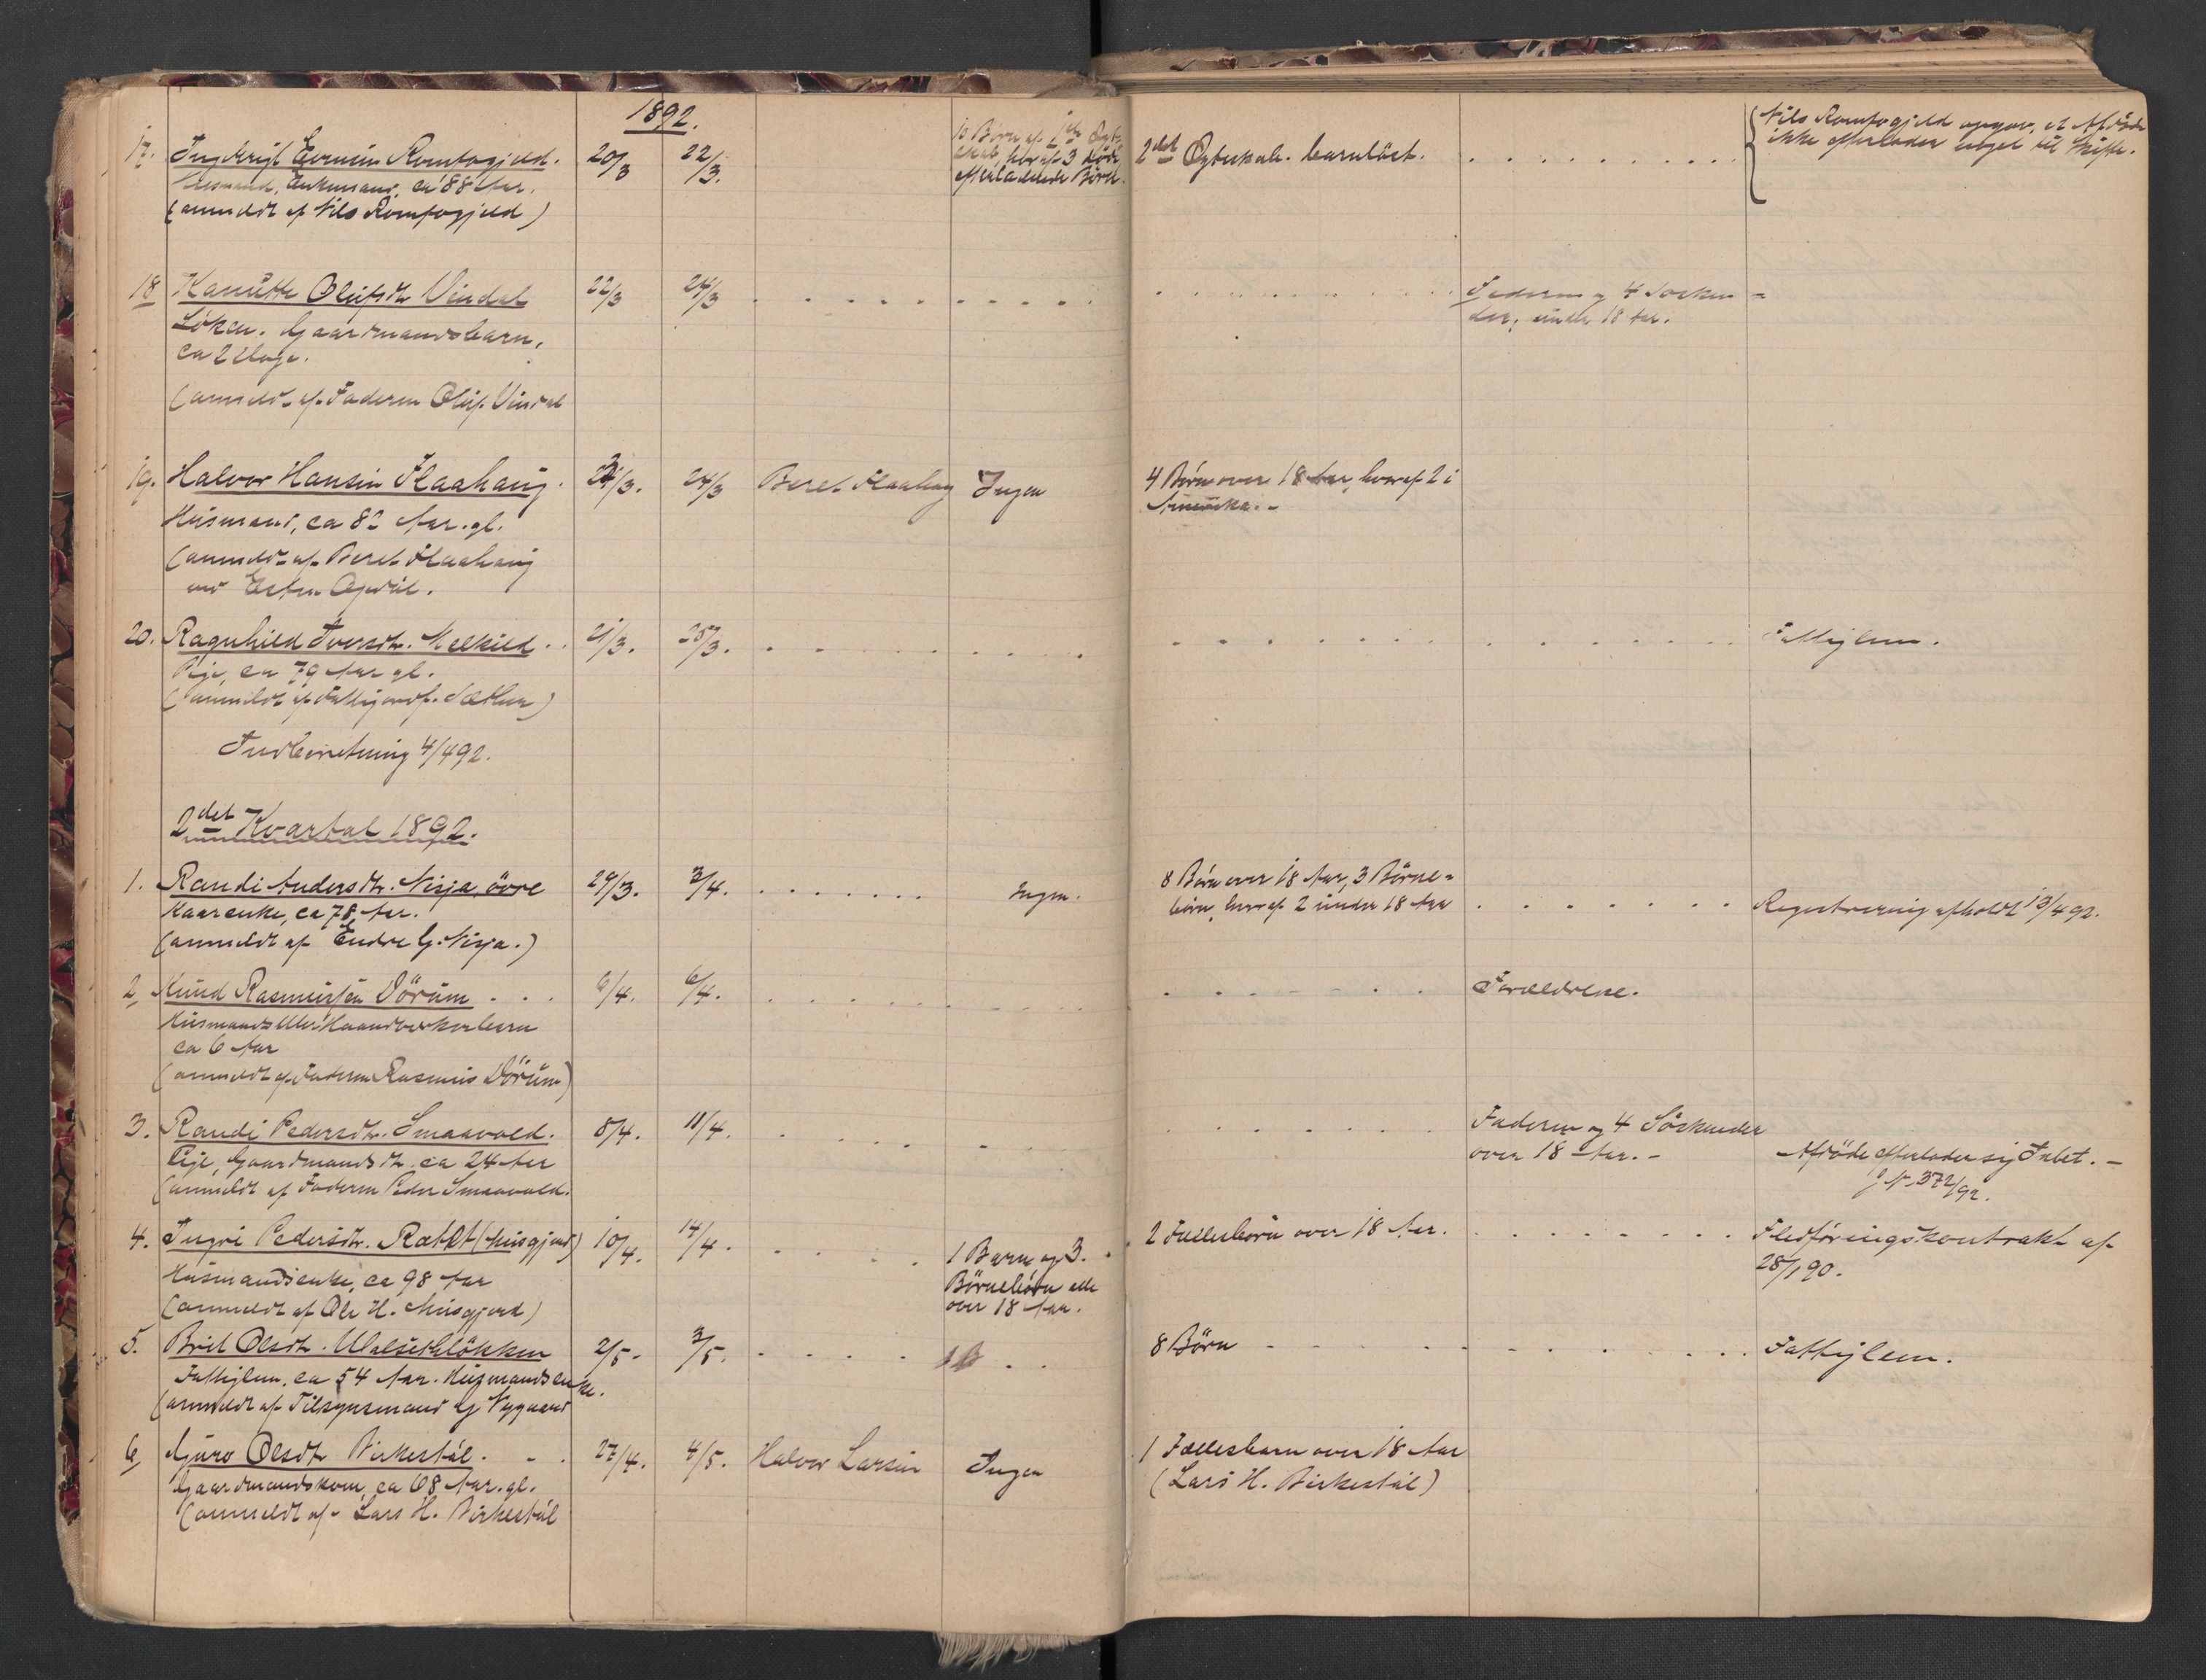 1892.
17. Ingebrigt Evensen Romfogjeld. 20/3 22/3. 10 Børn af 1ste Ægte-
skab, hvoraf 3 døde,
efterladende Børn. 2det Ægteskab. barnløst. Nils Romfogjeld opgav, at Afdøde
ikke efterlader noget til Skifte.
Husmand, Enkemand, ca 88 Aar.
(anmeldt af Nils Romfogjeld)
18 Olufsdtr. Vindal 22/3 24/3 Faderen og 4 Søsken-
der, under 18 Aar.
Løken. Gaardmandsbarn,
ca 2 Uger.
(anmeldt af Faderen Oluf Vindal
19. Halvor Hansen Flaahaug. /3. 24/3 Beret Flaahaug Ingen 4 Børn over 18 Aar, hvoraf 2 i
Amerika. -
Husmand, ca 82 Aar. gl.
(anmeldt af Beret Flaahaug
ved Opdøl.
20. Ragnhild Iversdtr. 21/3. 25/3. Fattiglem.
Pige, ca 79 Aar gl.
(anmeldt af Fattigordf. Sæther)
Indberetning 4/4 92.
2det Kvartal 1892.
1. Randi Andersdtr. Nisja øvre 29/3. 3/4. Ingen. 8 Børn over 18 Aar, 3 Børne-
børn, hvoraf 2 under 18 Aar Registrering afholdt 13/4 92.
Kaarenke, ca 78 Aar.
(anmeldt af Endre G. Nisja.)
2, Knud Rasmussen Dørum 6/4. 6/4. Forældrene.
Husmands Haandverkerbarn
ca 6 Aar
(anmeldt af Faderen Rasmus Dørum)
3. Randi Pedersdtr. Smaavold. 8/4. 11/4. Faderen og 4 Søskender
over 18 Aar. - Afdøde efterlader sig Intet. -
J. N. 372/92.
Pige, Gaardmandsdtr. ca 24 Aar
(anmeldt af Faderen Peder Smaavold.
4. Ingri Pedersdtr. (Musgjerd) 10/4. 14/4. 1 Barn og 3
Børnebørn alle
over 18 Aar. 2 Fællesbørn over 18 Aar. Fledføringskontrakt af
28/1 90.
Husmandsenke, ca 98 Aar
(anmeldt af Ole H. Musgjerd)
5. Brit Olsdtr. 2/5 3/5. 8 Børn Fattiglem.
Fattiglem, ca 54 Aar. Husmandsenke.
(anmeldt af Tilsynsmand G Nygaard
6, Guro Olsdtr Birkestøl. 27/4. 4/5. Halvor Larsen Ingen 1 Fællesbarn over 18 Aar
(Lars H. Birkestøl)
Gaardmandskone, ca 68 Aar. gl.
(anmeldt af Lars H. Birkestøl